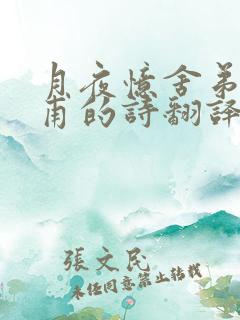 月夜憶舍弟
甫的詩翻譯
張文民
未经同意禁止转载